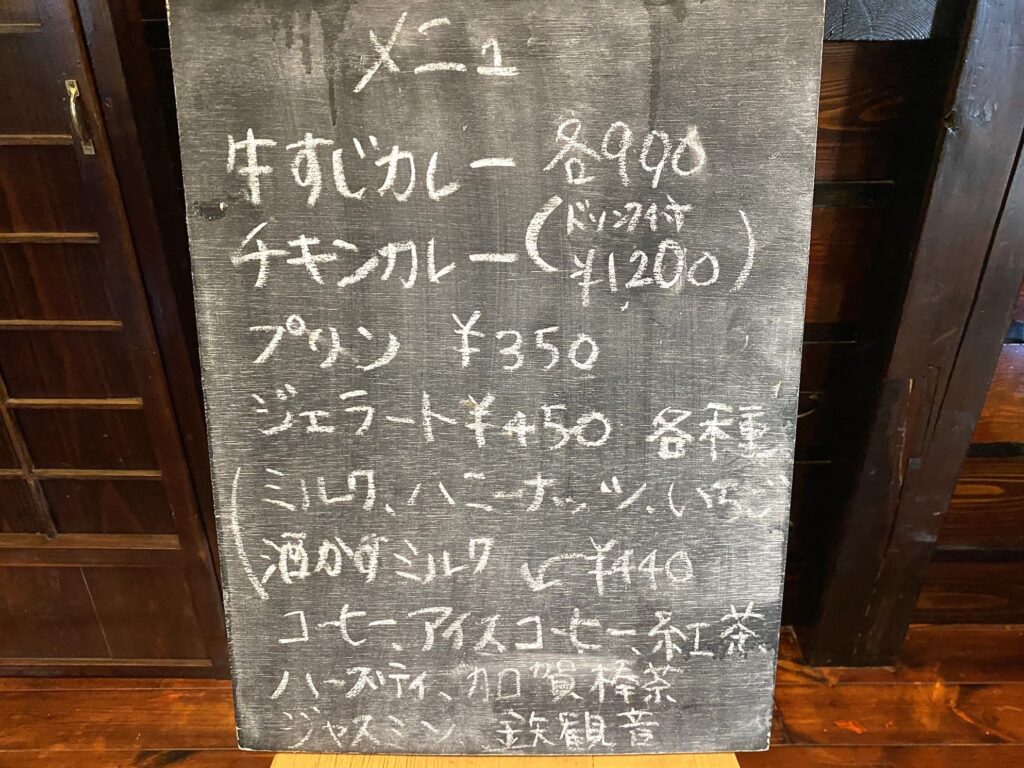 メニュー
牛すじカレー 各990
チキンカレー(ドリンク付 ¥1200)
プリン ¥350
ジェラート¥450 各種
(ミルク、ハニーナッツ、いちご
酒かすミルク ↙¥440
コーヒー、アイスコーヒー、紅茶、
ハーブティ、加賀棒茶
ジャスミン 鉄観音